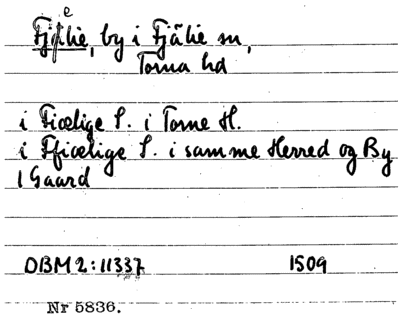 Fjelie, by i Fjälie sn,
Torna hd
i Fiælige S. i Torne H.
i Ffiælige S. i samme Herred og By
1 Gaard
DBM 2:11337 1509
Nr 5836.